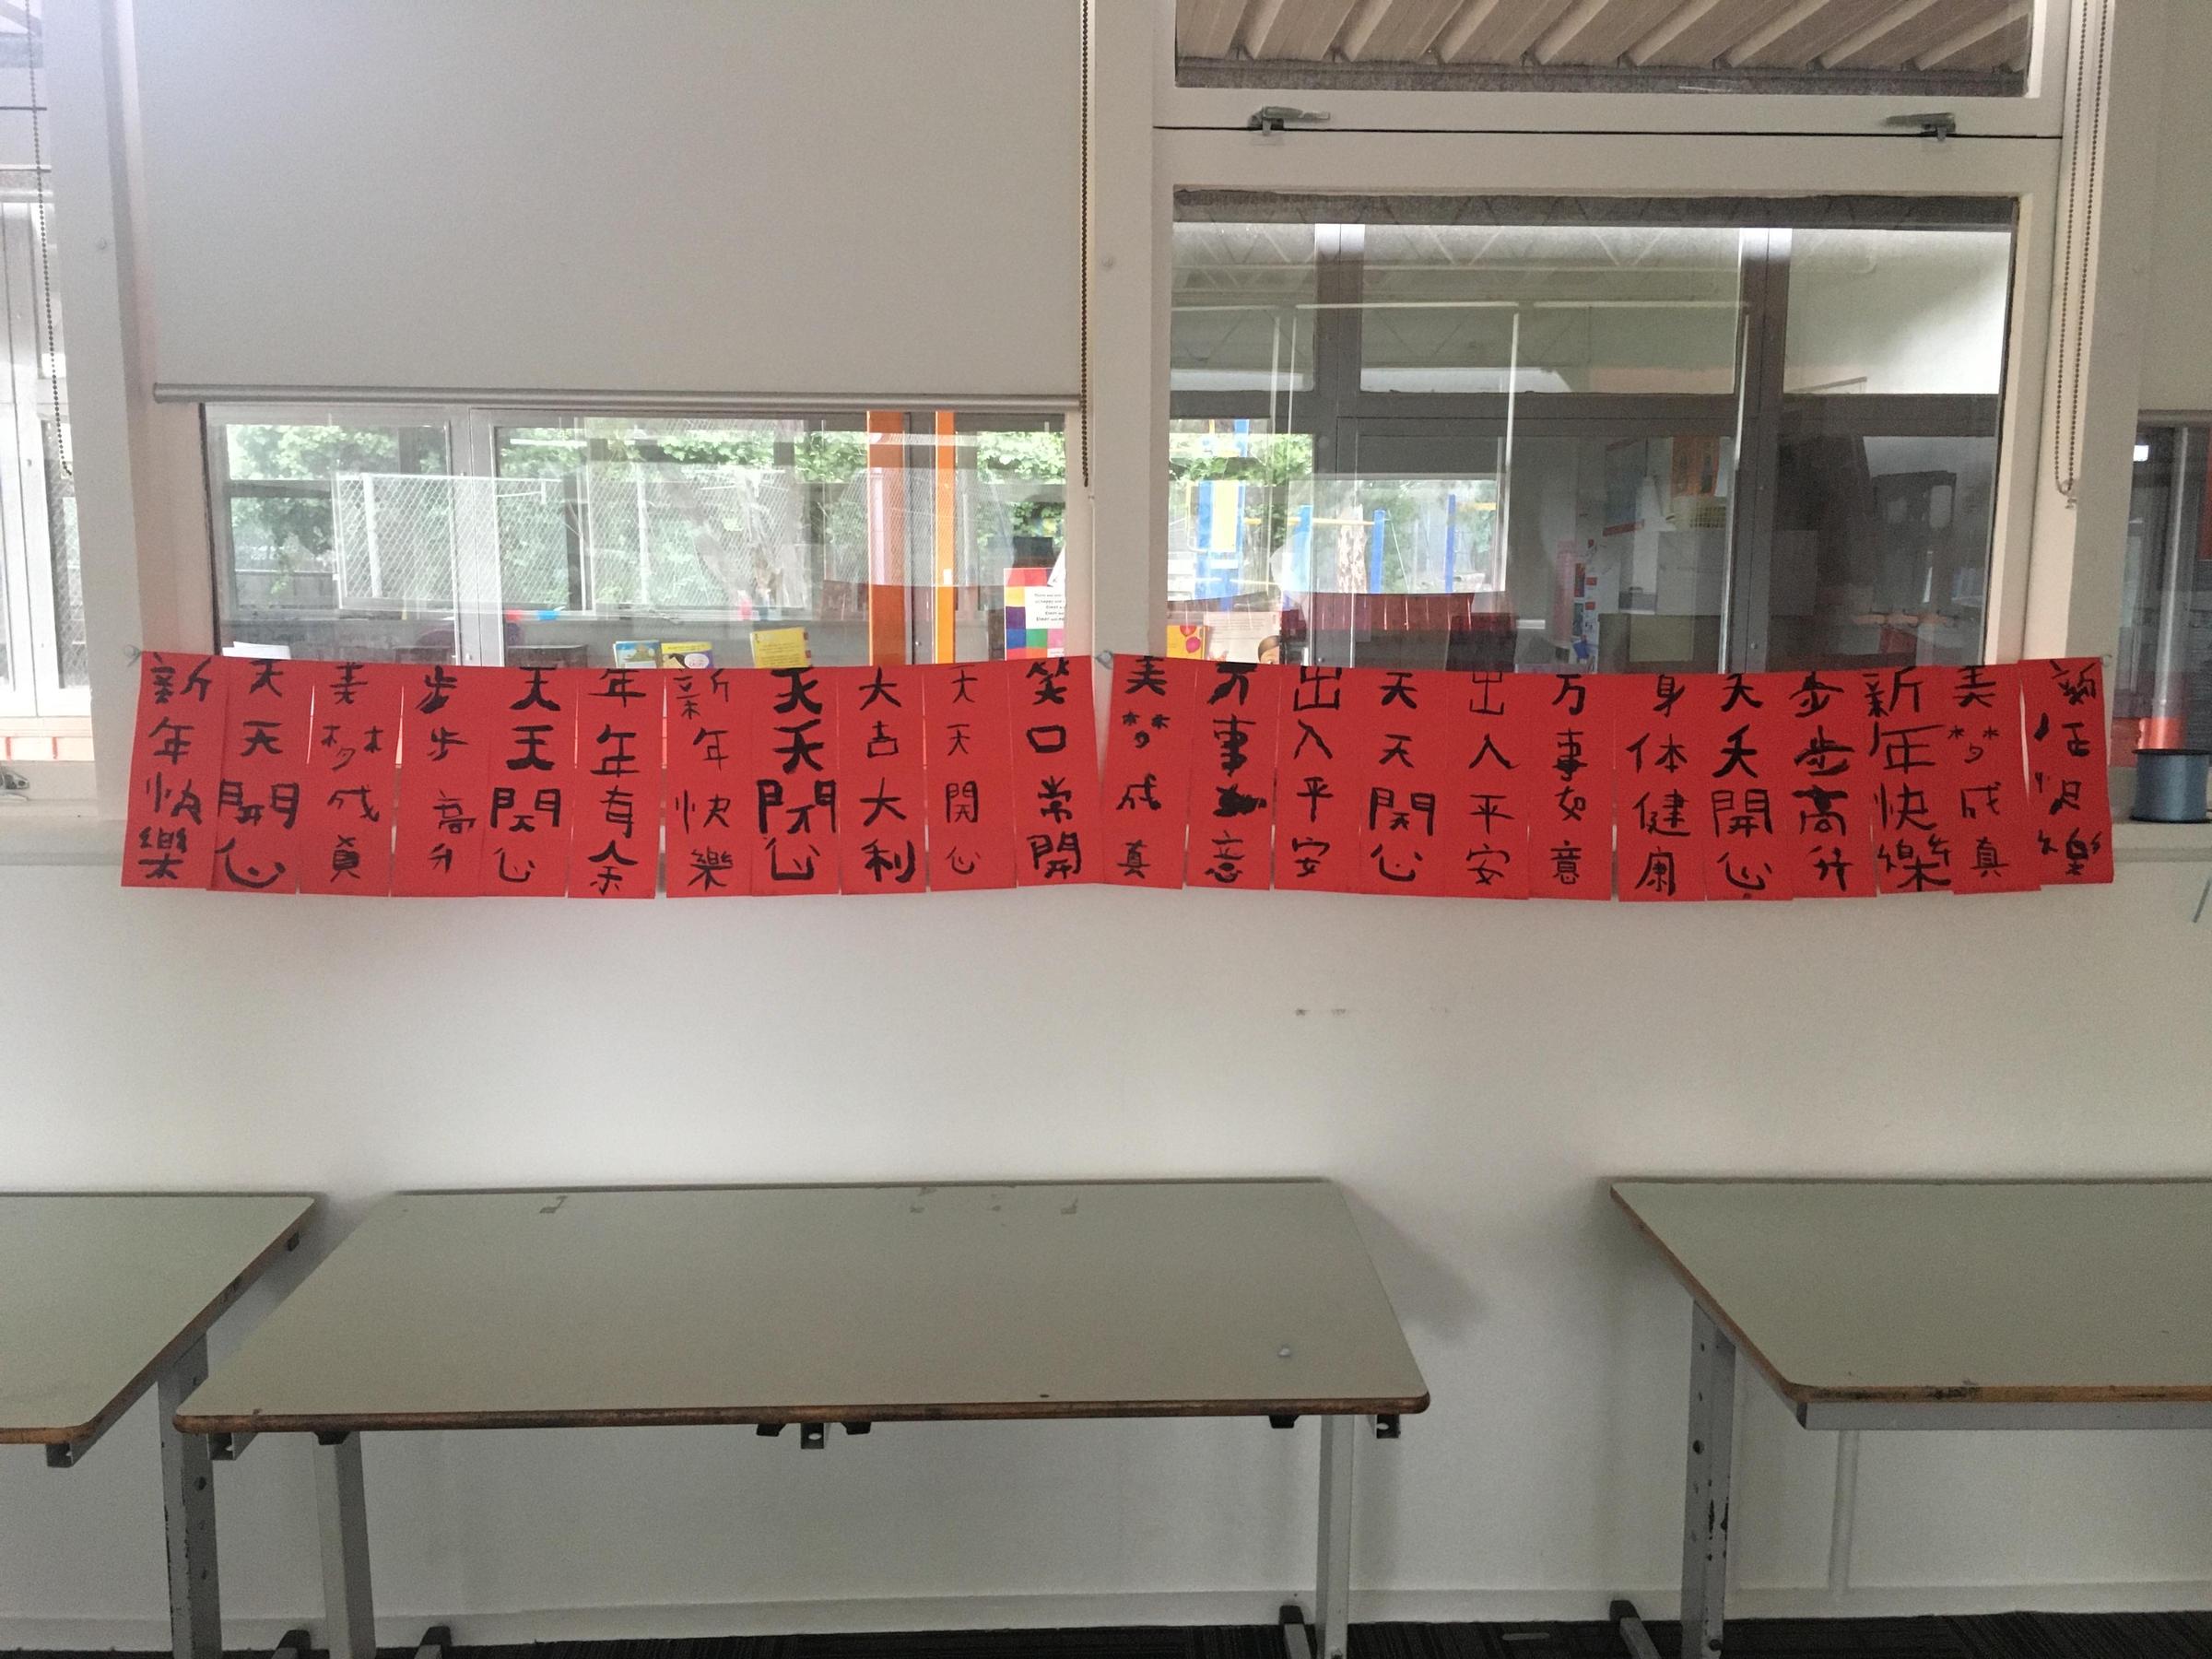 新年快樂
天天開心
美梦成真
步步高升
天天開心
年年有余
新年快樂
天天開心
大吉大利
天天開心
笑口常開
美梦成真
万事如意
出入平安
天天開心
出入平安
万事如意
身体健康
天天開心
步步高升
新年快樂
美梦成真